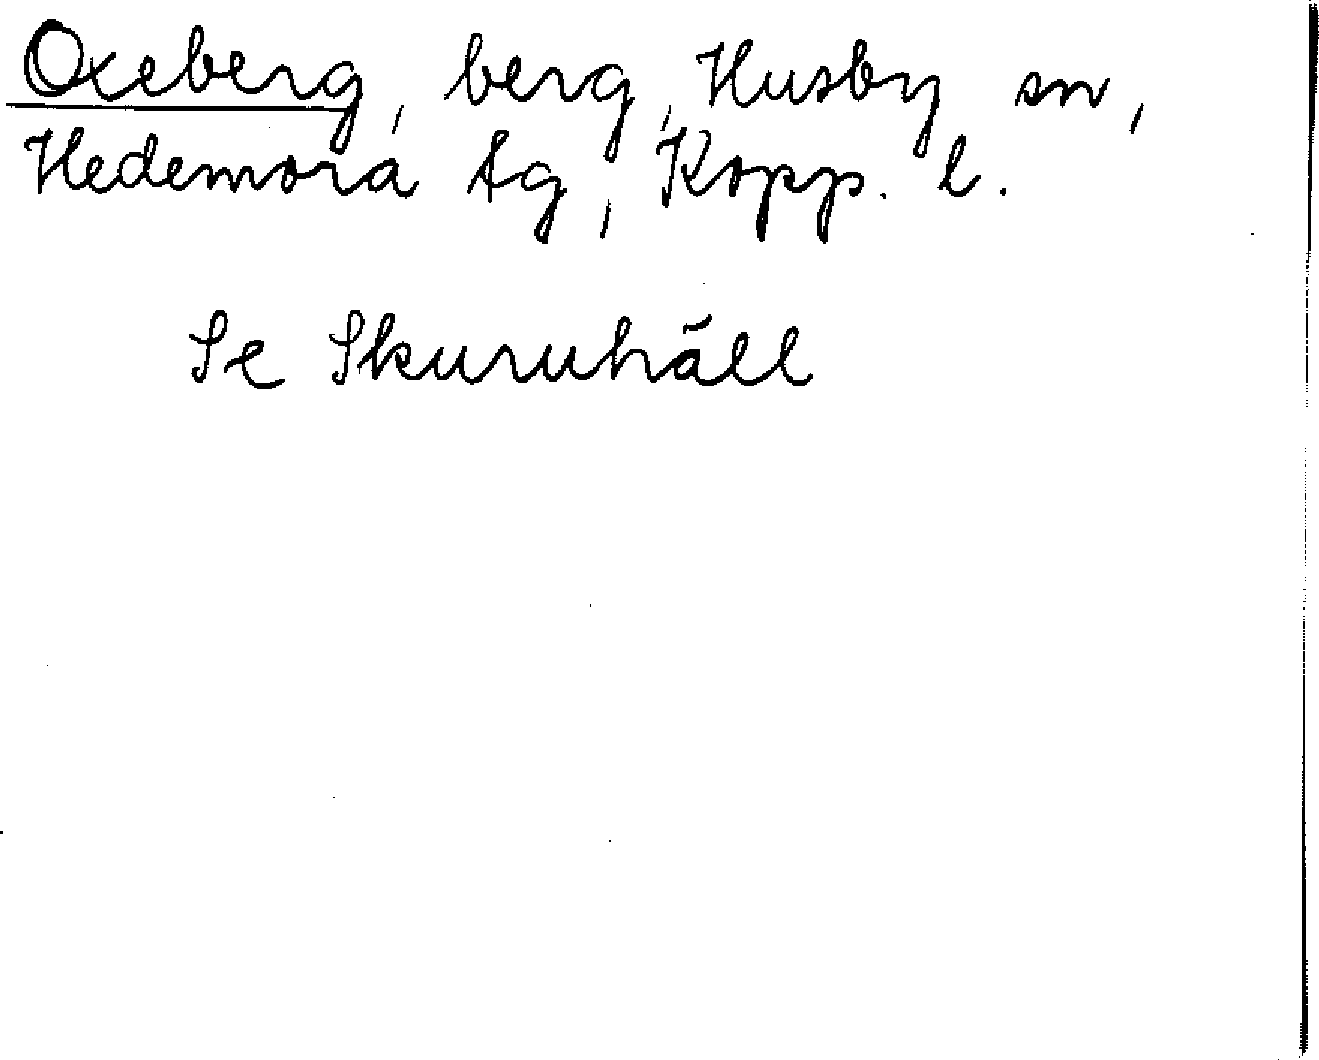 Oxeberg, berg, Husby sn,
Hedemora tg, Kopp. l.
Se Skuruhäll